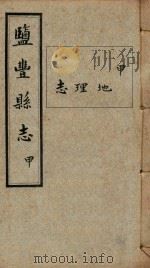 鹽豐縣志 甲
甲
地理志